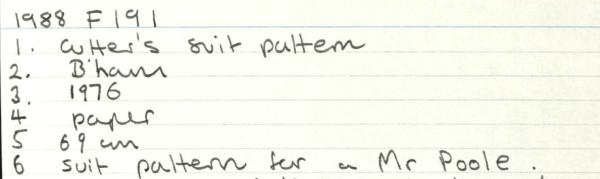 1988 F191
1. cutter's suit pattern
2. B'ham
3. 1976
4 paper
5 69 cm
6 suit pattern for a Mr Poole.